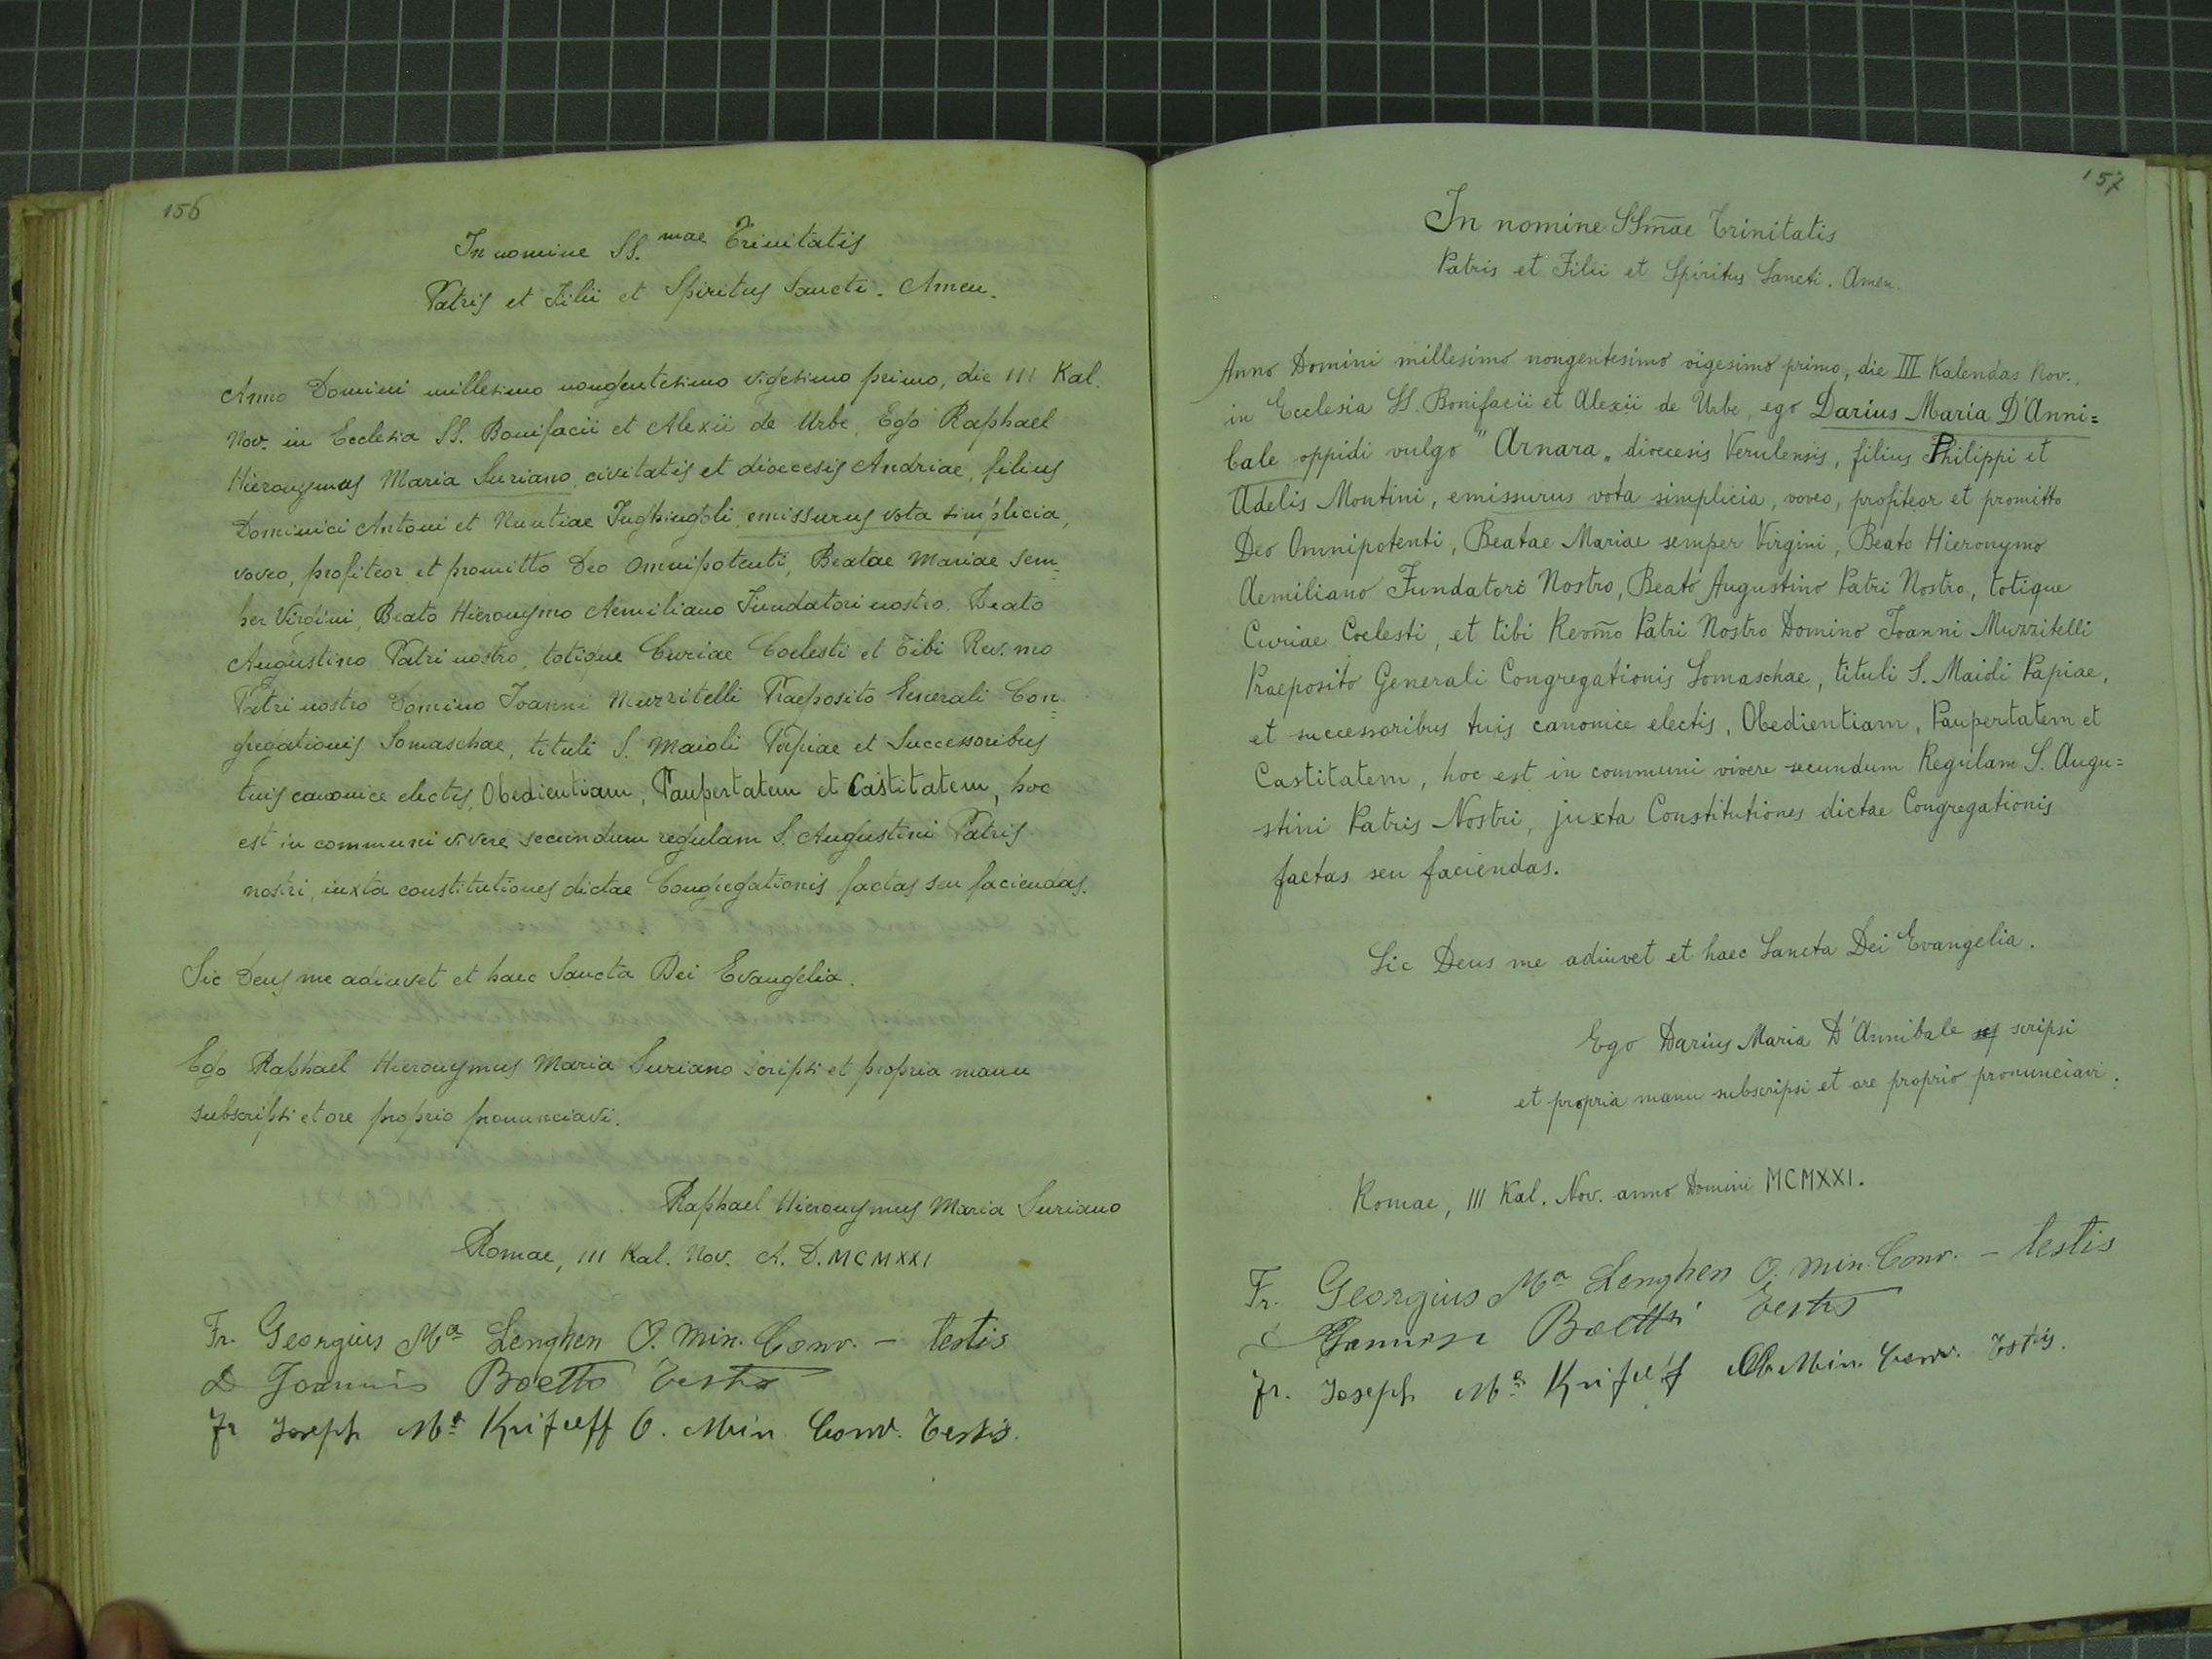 156
In nomine SS.mae Trinitatis
Patris et Filii et Spiritus Sancti. Amen.
Anno Domini millesimo nongentesimo vigesimo primo, die III Kal.
Nov. in Ecclesia SS. Bonifacii et Alexii de Urbe, Ego Raphael
Hieronymus Maria Suriano, civitatis et dioecesis Andriae, filius
Dominici Antoni et Nuntiae Inghingoli, emissurus vota simplicia,
voveo, profiteor et promitto Deo Omnipotenti, Beatae Mariae sem=
per Virgini, Beato Hieronymo Aemiliano Fundatori nostro, Beato
Augustino Patri nostro, totique Curiae Coelesti et Tibi Rev.mo
Patri nostro Domino Joanni Muzzitelli Praeposito Generali Con=
gregationis Somaschae, tituli S. Maioli Papiae et Successoribus
tuis canonice electis, Obedientiam, Paupertatem et Castitatem, hoc
est in communi vivere secundum regulam S. Augustini Patris
nostri, iuxta constitutiones dictae Congregationis factas seu faciendas.
Sic Deus me adiuvet et haec Sancta Dei Evangelia.
Ego Raphael Hieronymus Maria Suriano scripsi et propria manu
subscripsi et ore proprio pronunciavi.
Raphael Hieronymus Maria Suriano
Romae, III Kal. Nov. A. D. MCMXXI
Fr. Georgius Ma Lenghen O. Min. Conv. - testis
D Joannis Boetto Testis
Fr Joseph Ma O. Min Conv. Testis.
157
In nomine SSm̄ae Trinitatis
Patris et Filii et Spiritus Sancti. Amen.
Anno Domini millesimo nongentesimo vigesimo primo, die III Kalendas Nov.,
in Ecclesia SS. Bonifacii et Alexii de Urbe, ego Darius Maria D'Anni=
bale oppidi vulgo "Arnara" dioecesis Verulensis, filius Philippi et
Adelis Montini, emissurus vota simplicia, voveo, profiteor et promitto
Deo Omnipotenti, Beatae Mariae semper Virgini, Beato Hieronymo
Aemiliano Fundatori Nostro, Beato Augustino Patri Nostro, totique
Curiae Coelesti, et tibi Revm̄o Patri Nostro Domino Joanni Muzzitelli
Praeposito Generali Congregationis Somaschae, tituli S. Maioli Papiae,
et successoribus tuis canonice electis, Obedientiam, Paupertatem et
Castitatem, hoc est in communi vivere secundum Regulam S. Augu=
stini Patris Nostri, juxta Constitutiones dictae Congregationis
factas seu faciendas.
Sic Deus me adiuvet et haec Sancta Dei Evangelia.
Ego Darius Maria D'Annibale scripsi
et propria manu subscripsi et ore proprio pronunciavi.
Romae, III Kal. Nov. anno Domini MCMXXI.
Fr. Georgius Ma Lenghen O. Min. Conv. - testis
Testis
Fr. Joseph Ma Min. Conv. Testis.